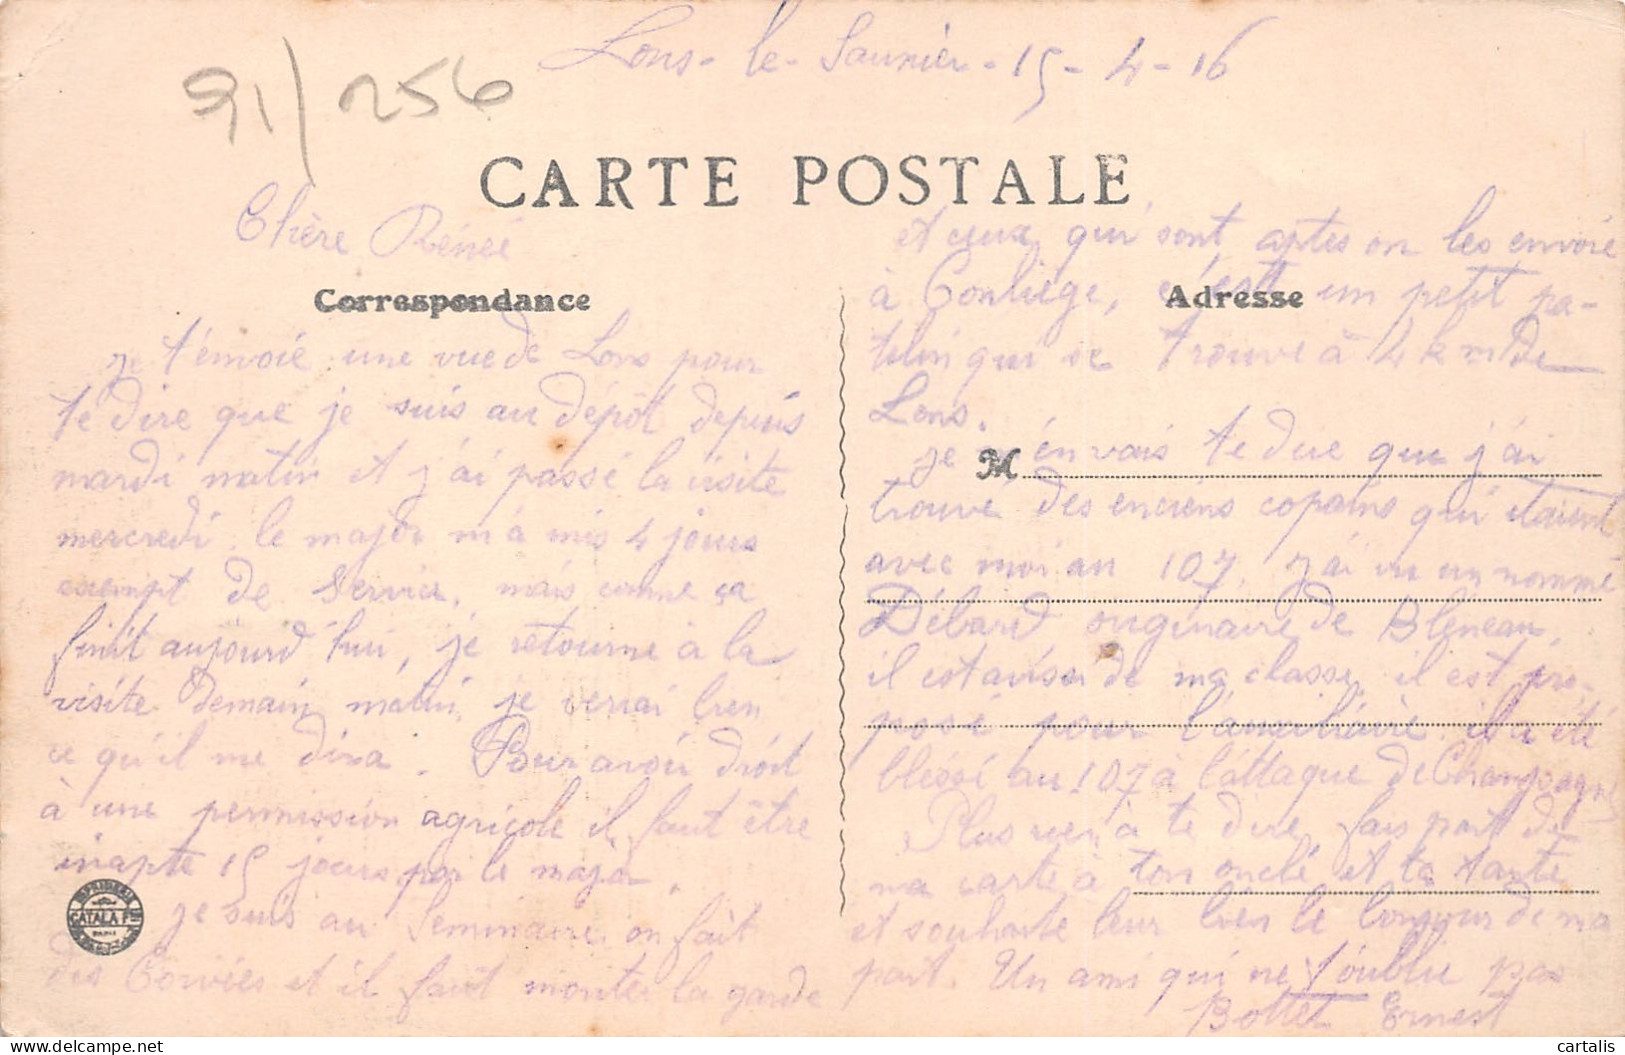 Lons-le-Saunier - 15-4-16
91/256
CARTE POSTALE
Chère Rénée
Correspondance
je t'envoie une vue de Lons pour
te dire que je suis au dépôt depuis
mardi matin et j'ai passé la visite
mercredi. le major m'a mis 4 jours
exempt de service. mais comme ça
finit aujourd'hui, je retourne à la
visite demain matin, je verrai bien
ce qu'il me dira. Pour avoir droit
à une permission agricole il faut être
inapte 15 jours par le major.
je suis au Seminaire, on fait
des Corvées et il faut monter la garde
IMPRIMERIE
CATALA Frs
PARIS
et ceux qui sont aptes on les envoie
à Conliège, c'est un petit pa-
Adresse
telin qui se trouve à 4 km de
Lons.
je M' en vais te dire que j'ai
trouve des enciens copains qui étaient
avec moi au 107. J'ai vu un nommé
Débard originaire de Bléneau,
il est aussi de ma classe, il est pro-
posé pour l'auxiliaire il a été
blessé au 107 à l'attaque de Champagne
Plus rien à te dire, fais part de
ma carte à ton oncle et ta tante
et souhaite leur bien le bonjour de ma
part. Un ami qui ne t'oublie pas
Bottet Ernest
cartalis